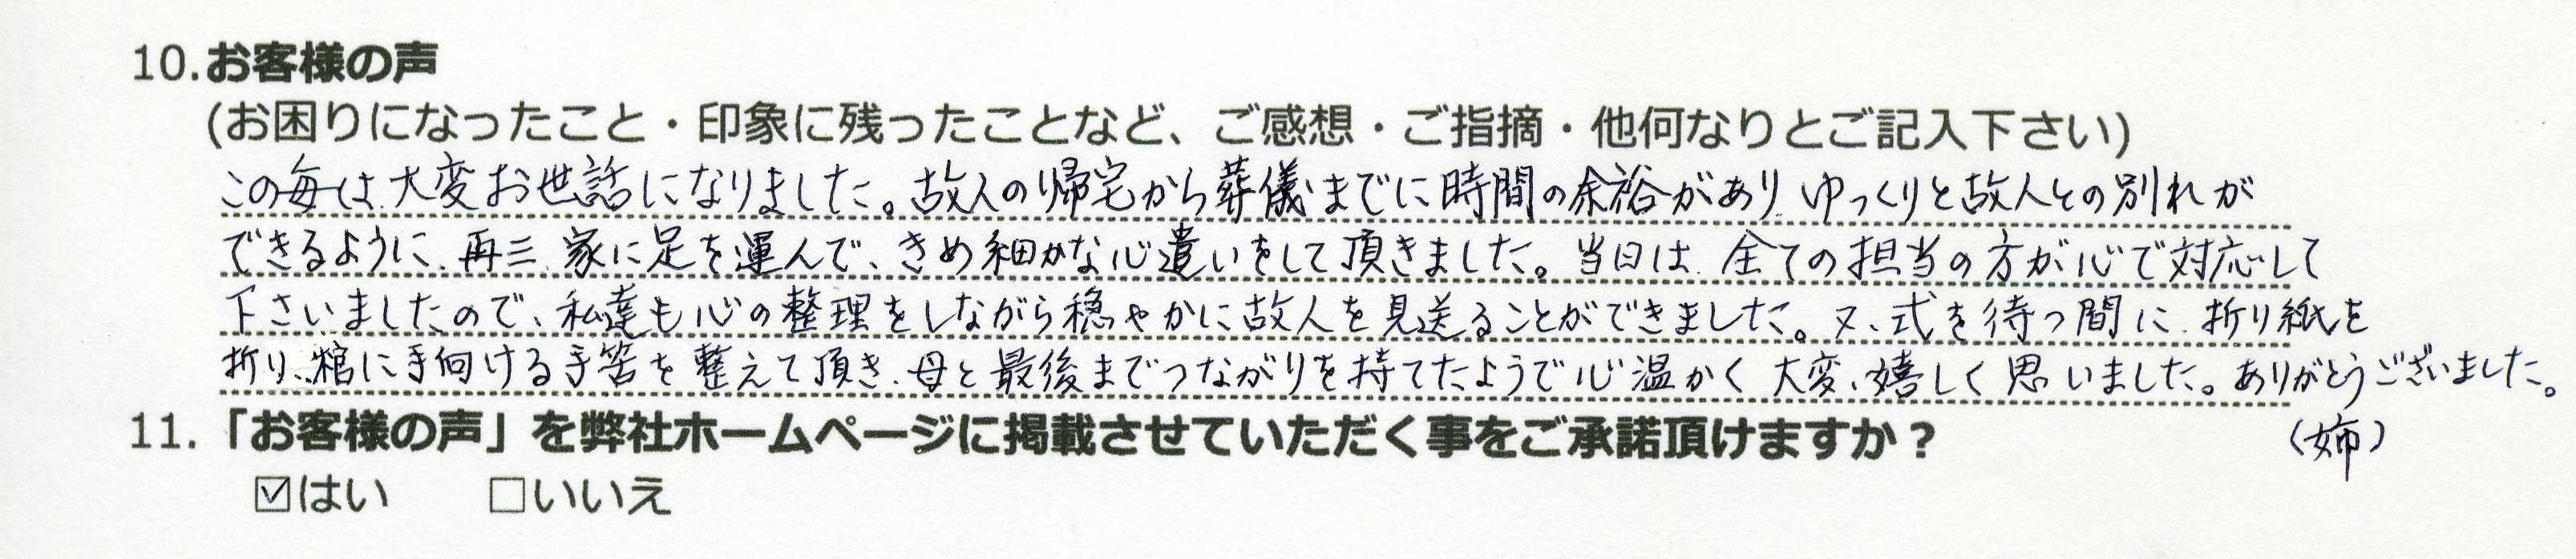 10.お客様の声
(お困りになったこと・印象に残ったことなど、ご感想・ご指摘・他何なりとご記入下さい)
この毎は、大変お世話になりました。故人の帰宅から葬儀までに時間の余裕があり、ゆっくりと故人との別れが
できるように、再三、家に足を運んで、きめ細かな心遣いをして頂きました。当日は、全ての担当の方が心で対応して
下さいましたので、私達も心の整理をしながら穏やかに故人を見送ることができました。又、式を待つ間に、折り紙を
折り、棺に手向ける手筈を整えて頂き、母と最後までつながりを持てたようで心温かく大変、嬉しく思いました。ありがとうございました。
(姉)
11.「お客様の声」を弊社ホームページに掲載させていただく事をご承諾頂けますか？
☑はい □いいえ